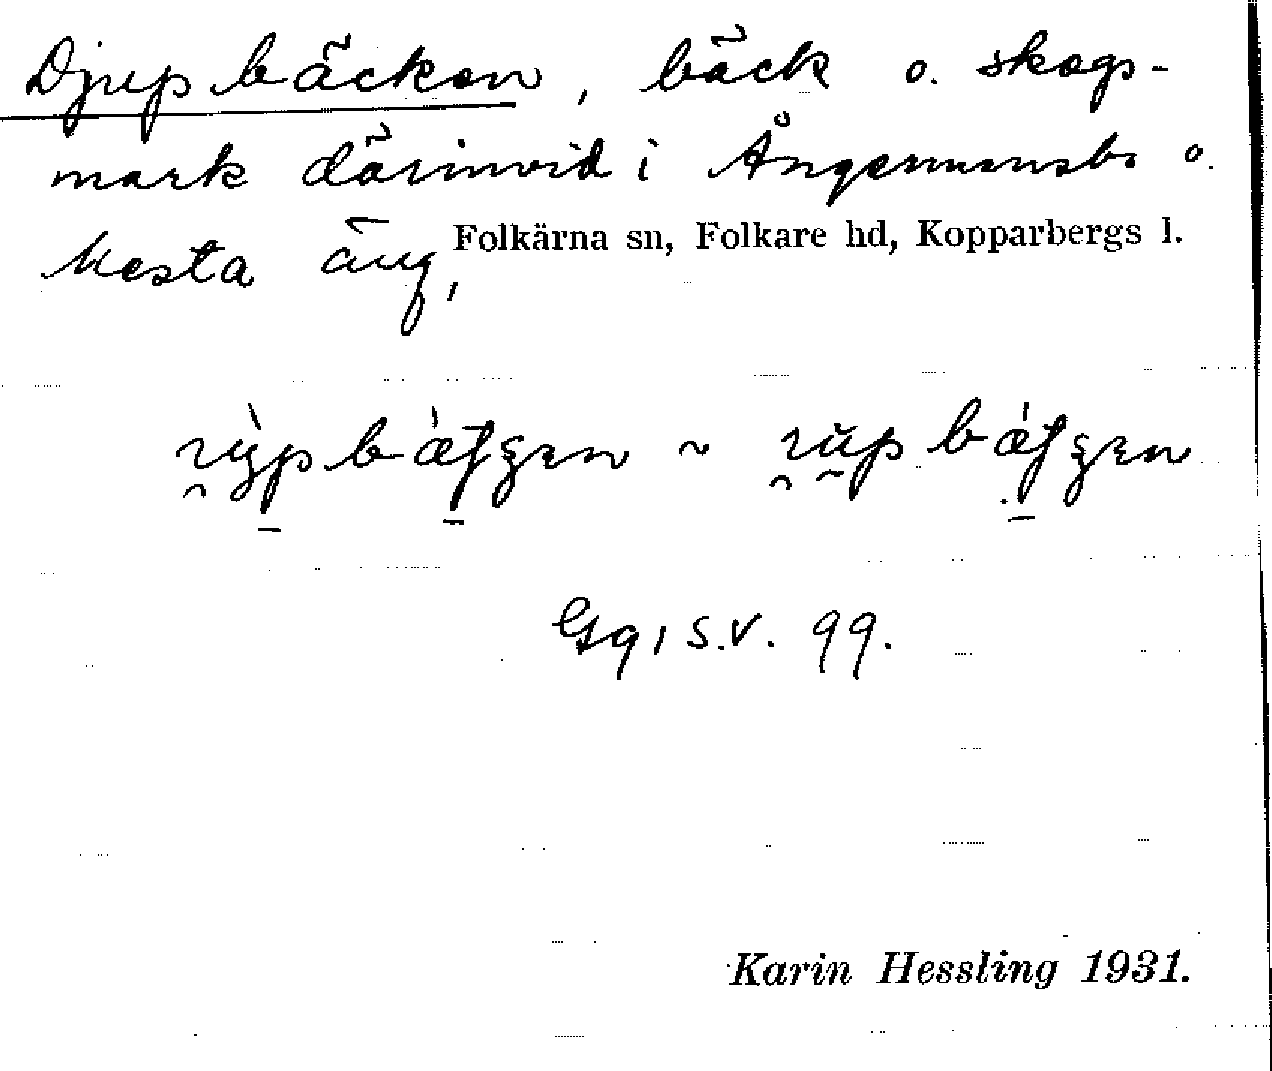 Djupbäcken, bäck o. skogs-
mark därinvid i Ångermansbo o.
Mesta äng,
Folkärna sn, Folkare hd, Kopparbergs l.
Gq, s.v. 99.
Karin Hessling 1931.